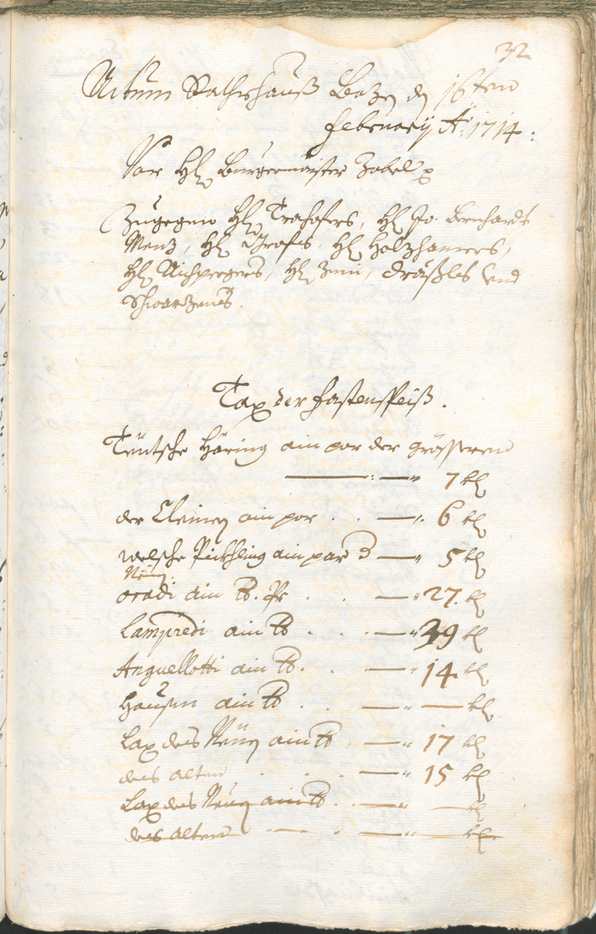 32
Actum Rathshauß Bozen den 16ten
February Ao: 1714:
Vor Hl Burgermaister Zobel
Zugegen Hl Trafoiers, Hl Jo: Bernhardt
Menz, Hl Grafes, Hl Holzhamers,
Hl Aichpergers, Hl Zenin, Dräßls und
Schwarzens.
Tax der Fastenspeiß.
Teutsche Häring ain par der grösseren
7 kr
der Cleinen ain par . . 6 kr
welsche Pickhling ain par 5 kr
Neu
oradi ain lb. . 27. kr
Lampredi ain lb . . . 29 kr
Anguellotti ain lb. . . 14 kr
Hausen ain lb . . kr
Lax des Neuen ain lb . 17 kr
des alten . . . 15 kr
Lax des Neuen ain lb . kr
des alten . kr